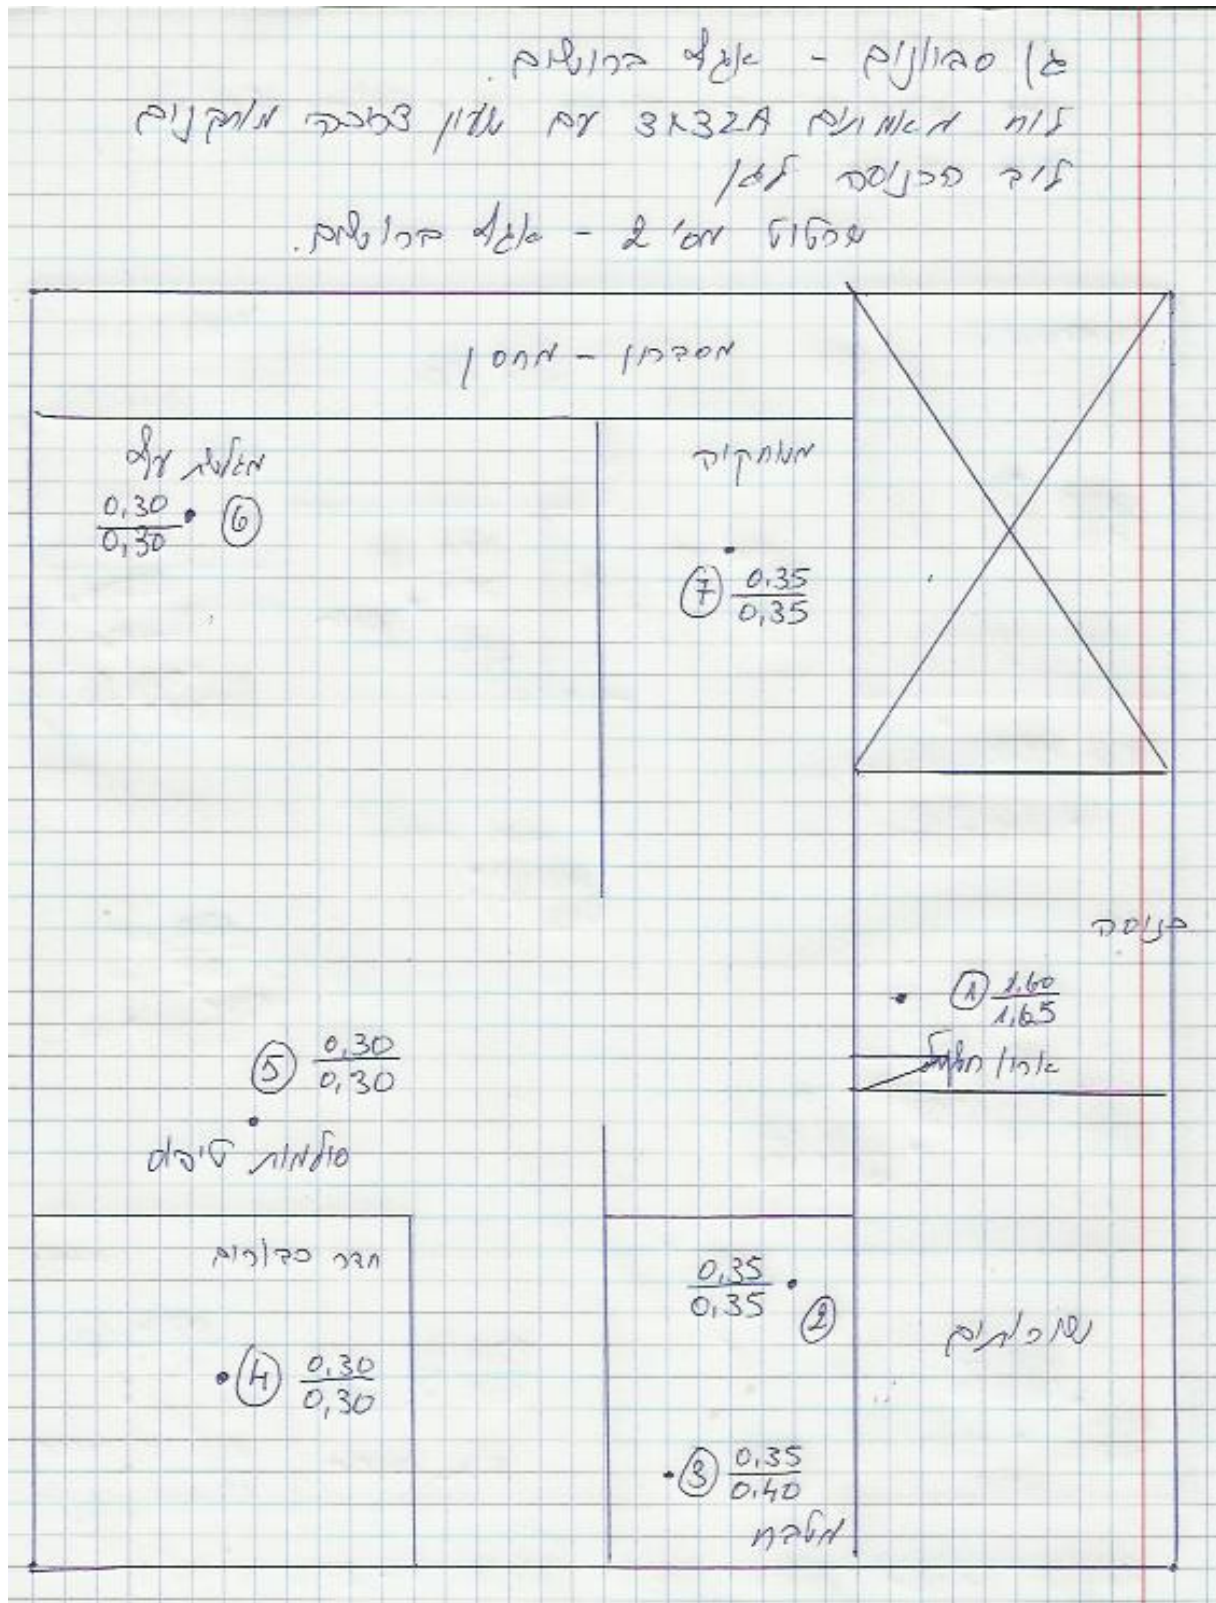 גן סביונים - אגף ברושים.
לוח מאמתים 3X32A עם שעון צריכה מותקנים
ליד הכניסה לגן
שרטוט מס' 2 - אגף ברושים.
מסדרון - מחסן
מגלשת עץ
0,30
0,30
6
משחקיה
7
0.35
0,35
כניסה
1
1,60
1,65
ארון חשמל
5
0,30
0,30
סולמות טיפוס
חדר כדורים
4
0,30
0,30
0,35
0,35
2
שירותים
3
0,35
0,40
מטבח